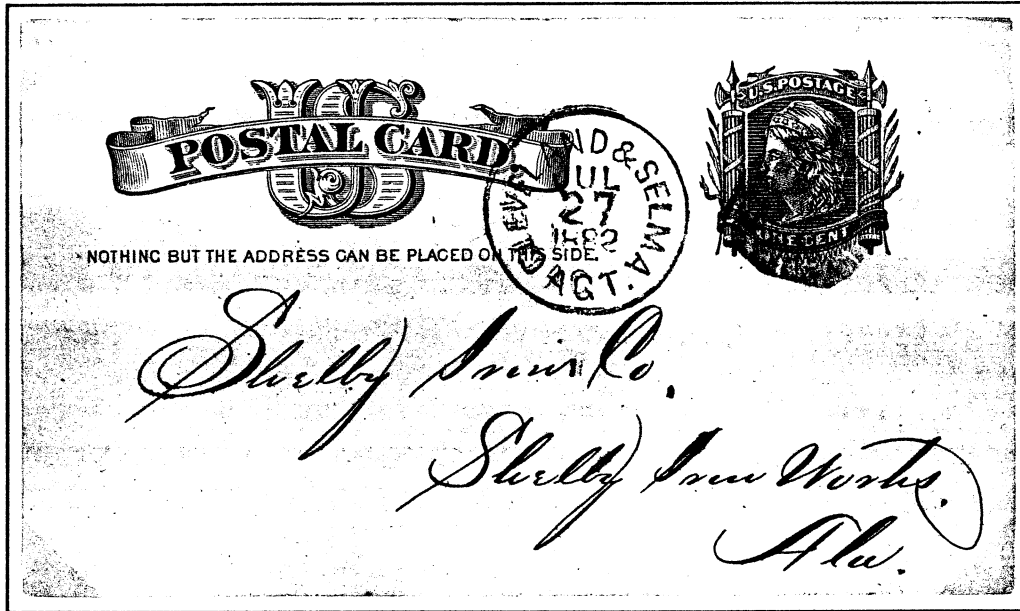 US
POSTAL CARD
U.S. POSTAGE
ONE CENT
NOTHING BUT THE ADDRESS CAN BE PLACED ON THIS SIDE.
CLEVELAND & SELMA. AGT.
JUL
27
1882
Shelby Iron Co.
Shelby Iron Works.
Ala.